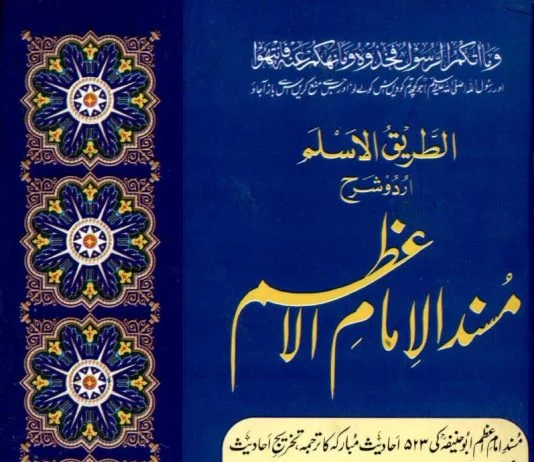 وما اتٰكم الرسول فخذوه وما نهٰكم عنه فانتهوا
اور رسول اللہ (صلی اللہ علیہ وسلم) جو کچھ تم کو دیں اس کو لے لو اور جس سے منع کریں اس سے باز آجاؤ
الطريق الاسلم
اردو شرح
مُسند الإمامِ الاعظم
مُسند امامِ عظم ابو حنیفہؒ کی ۵۲۳ احادیث مبارکہ کا ترجمہ تخریج احادیث